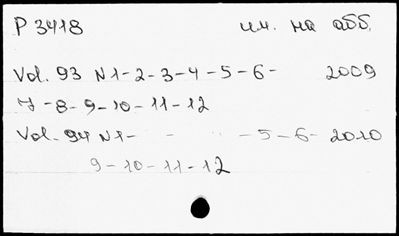 P 3418 и.ч. на абб.
Vol. 93 N 1-2-3-4-5-6- 2009
7-8-9-10-11-12
Vol. 94 N 1- - - 5-6- 2010
9-10-11-12